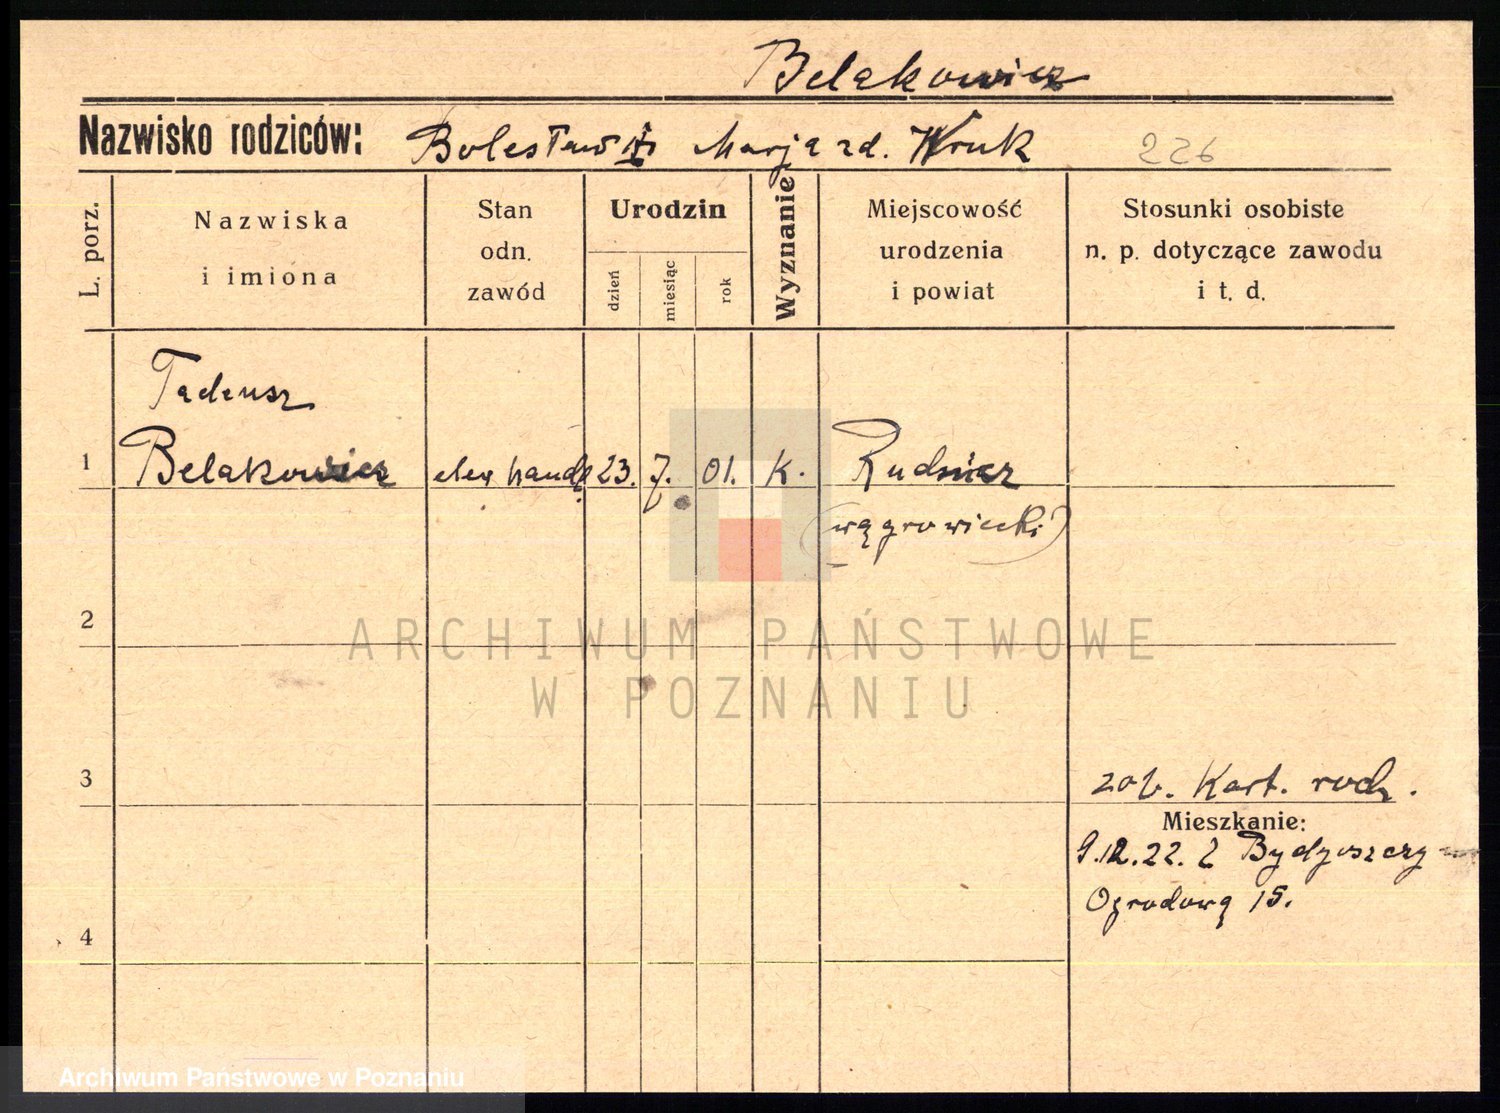 Belakowicz
Nazwisko rodziców: Bolesław i Marja zd. Kruk 226
L. porz.
Nazwiska
i imiona
Stan
odn.
zawód
Urodzin
dzień
miesiąc
rok
Wyznanie
Miejscowość
urodzenia
i powiat
Stosunki osobiste
n. p. dotyczące zawodu
i t. d.
Tadeusz
1 Belakowicz elew handl 23. 7. 01. K. Rudnicz
(wągrowiecki)
2
ARCHIWUM PAŃSTWOWE
W POZNANIU
3
zob. Kart. rodz.
Mieszkanie:
9.12.22. z Bydgoszczy
Ogrodowa 15.
4
Archiwum Państwowe w Poznaniu